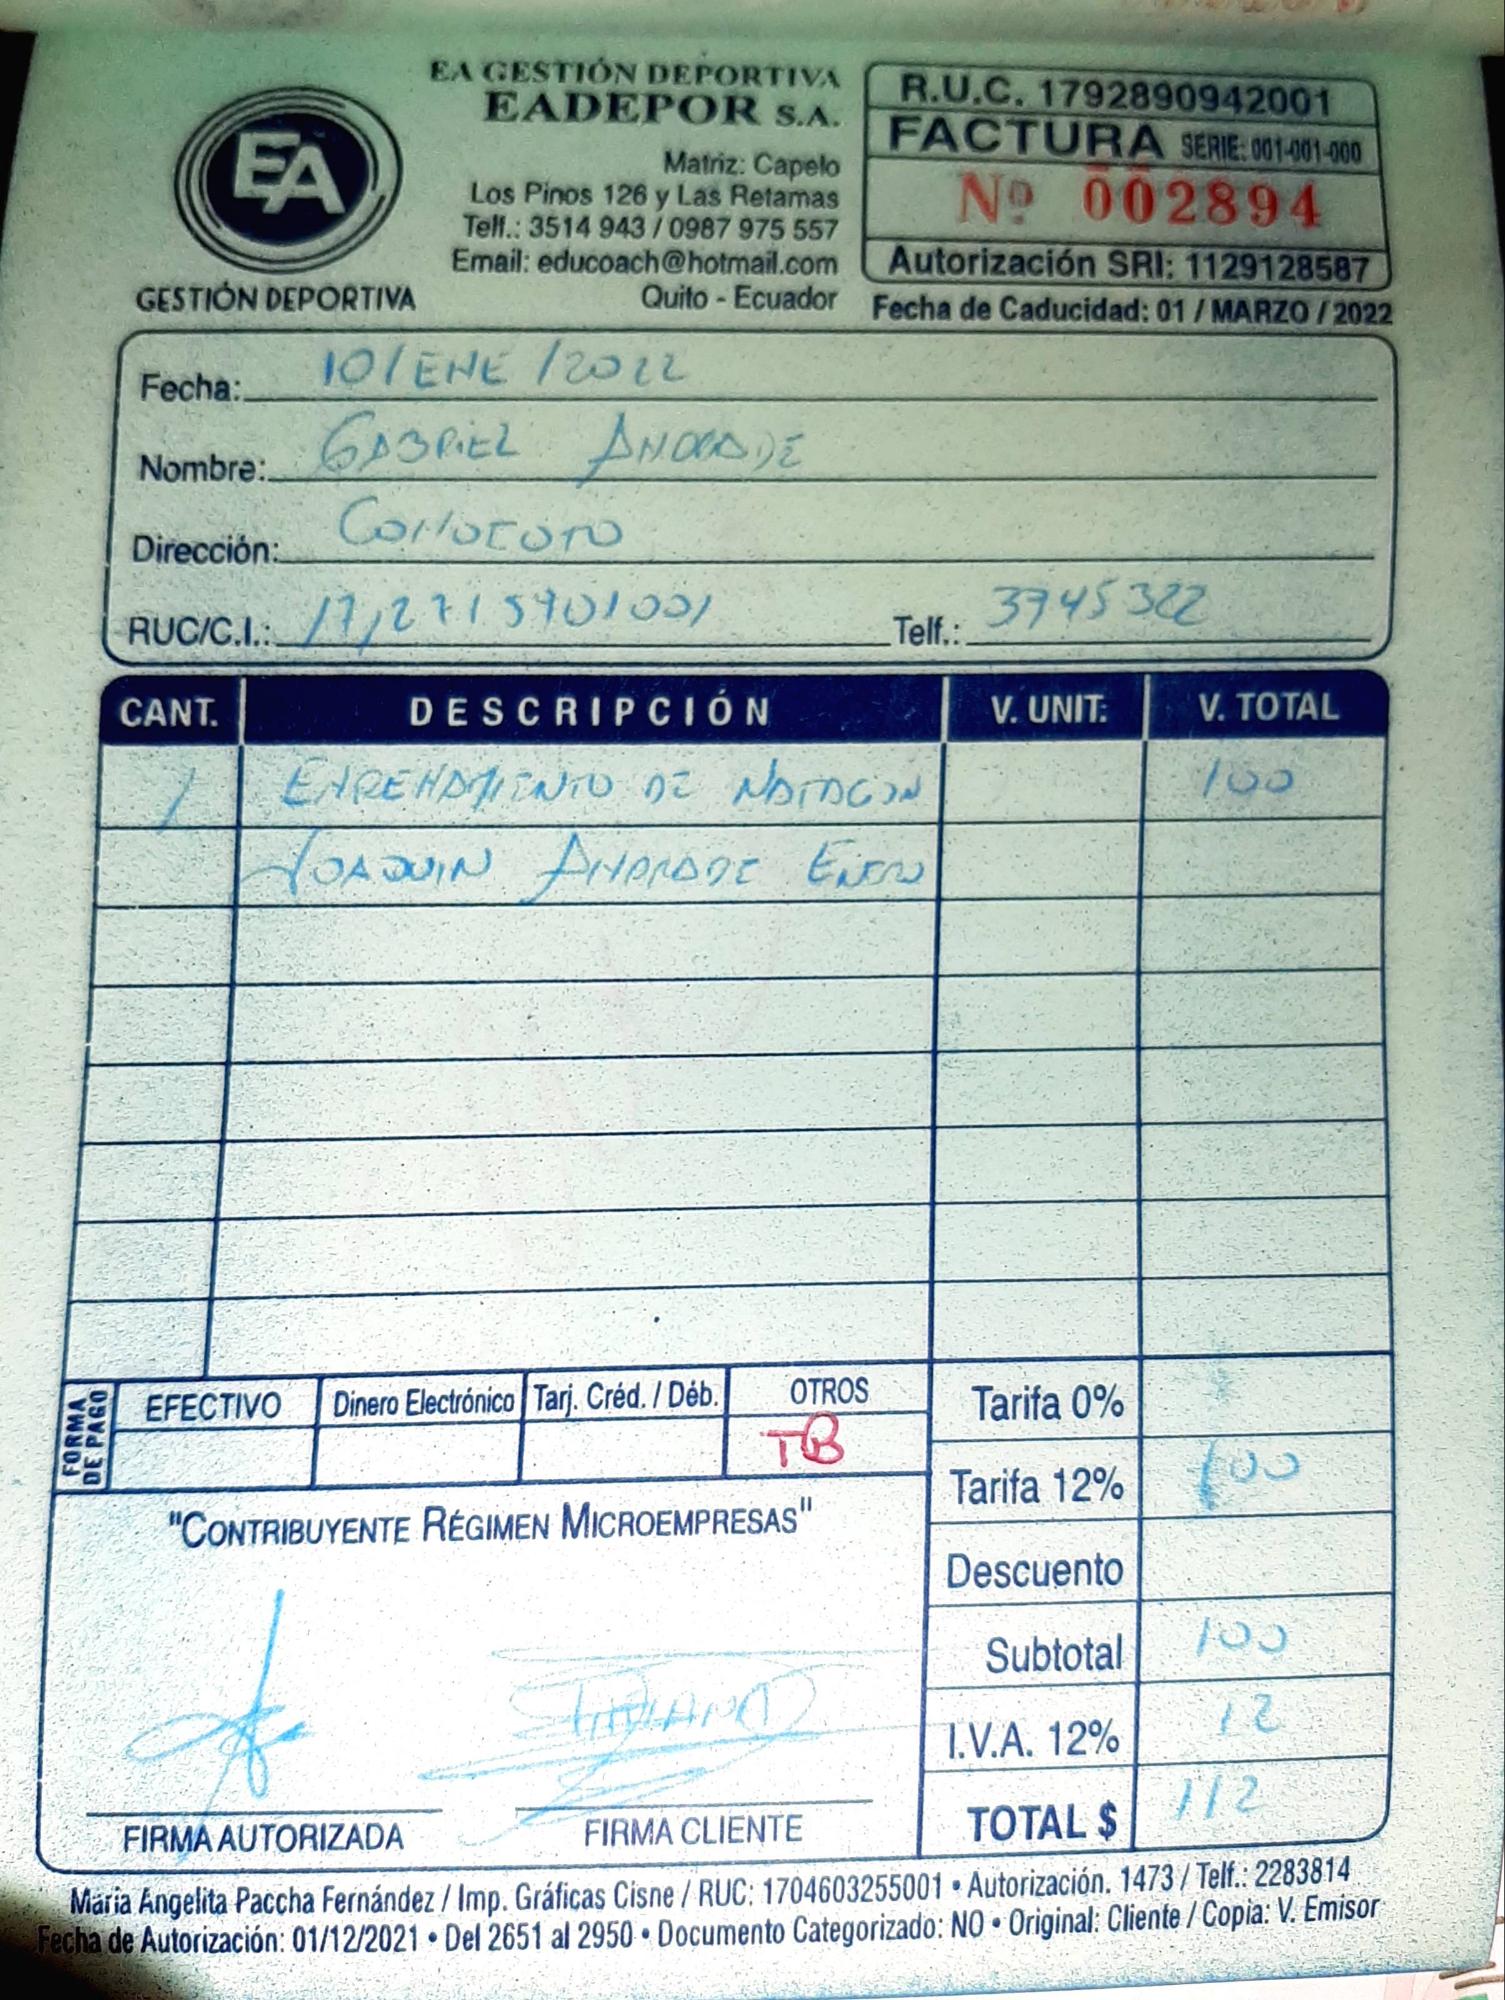 EA GESTIÓN DEPORTIVA
EADEPOR S.A.
EA
GESTIÓN DEPORTIVA
Matriz: Capelo
Los Pinos 126 y Las Retamas
Telf.: 3514 943 / 0987 975 557
Email: educoach@hotmail.com
Quito - Ecuador
R.U.C. 1792890942001
FACTURA SERIE: 001-001-000
Nº 002894
Autorización SRI: 1129128587
Fecha de Caducidad: 01 / MARZO / 2022
Fecha: 10/ENE/2022
Nombre: GABRIEL ANDRADE
Dirección: CONOCOTO
RUC/C.I.: Telf.: 3745322
CANT. DESCRIPCIÓN V. UNIT: V. TOTAL
1 ENTRENAMIENTO DE NATACION 100
JOAQUIN ANDRADE ENERO
FORMA DE PAGO
EFECTIVO Dinero Electrónico Tarj. Créd. / Déb. OTROS
TB
Tarifa 0%
Tarifa 12% 100
Descuento
Subtotal 100
I.V.A. 12% 12
TOTAL $ 112
"CONTRIBUYENTE RÉGIMEN MICROEMPRESAS"
FIRMA AUTORIZADA FIRMA CLIENTE
Maria Angelita Paccha Fernández / Imp. Gráficas Cisne / RUC: 1704603255001 • Autorización. 1473 / Telf.: 2283814
Fecha de Autorización: 01/12/2021 • Del 2651 al 2950 • Documento Categorizado: NO • Original: Cliente / Copia: V. Emisor